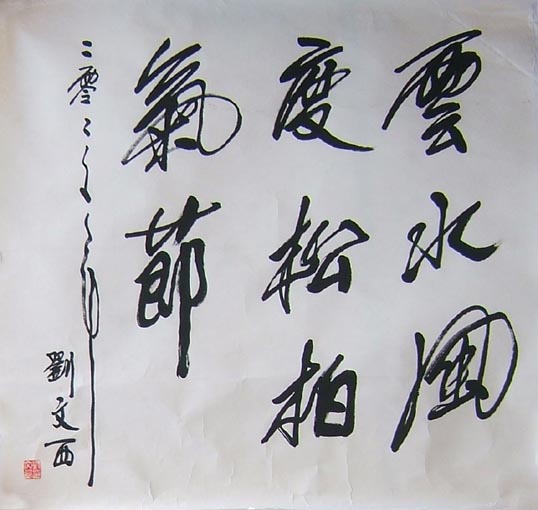 雲水風
度松柏
氣節
二零
劉文西